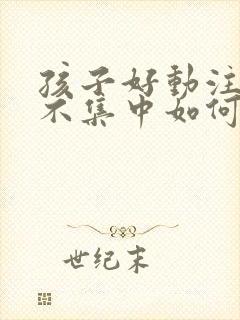 孩子好動注
不集中如何
世纪末